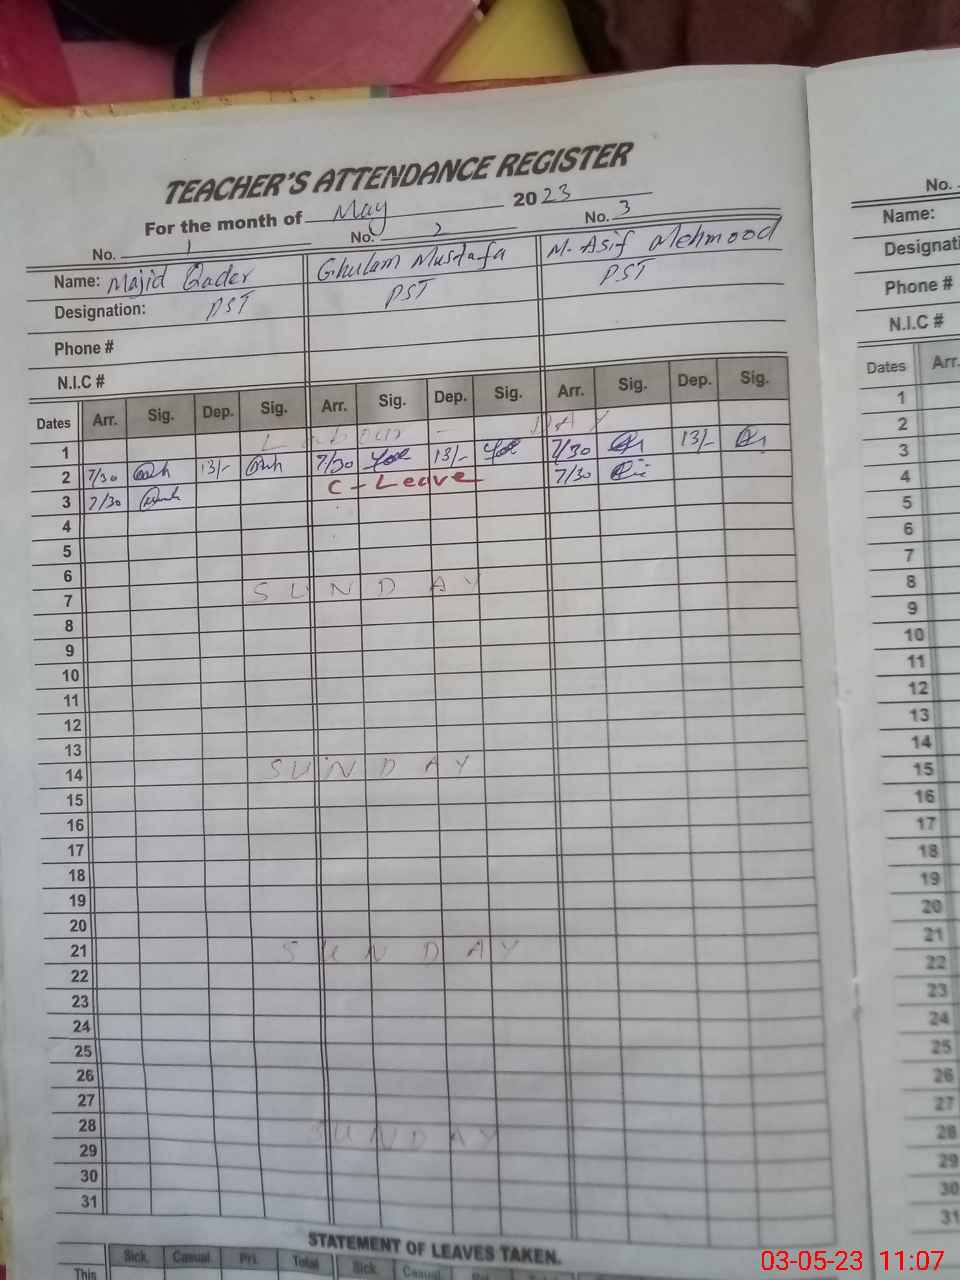 TEACHER'S ATTENDANCE REGISTER
For the month of May 2023
No. 1 No. 2 No. 3
Name: Majid Qader Ghulam Mustafa M. Asif Mehmood
Designation: PST PST PST
Phone #
N.I.C #
Dates Arr. Sig. Dep. Sig. Arr. Sig. Dep. Sig. Arr. Sig. Dep. Sig.
1 Labour - DAY
2 7/30 13/- 7/30 13/- 7/30 13/-
3 7/30 C - Leave 7/30
4
5
6
7 SUNDAY
8
9
10
11
12
13
14 SUNDAY
15
16
17
18
19
20
21 SUNDAY
22
23
24
25
26
27
28 SUNDAY
29
30
31
STATEMENT OF LEAVES TAKEN.
Sick. Casual. Pri. Total Sick. Casual.
This
No.
Name:
Designati
Phone #
N.I.C #
Dates Arr.
1
2
3
4
5
6
7
8
9
10
11
12
13
14
15
16
17
18
19
20
21
22
23
24
25
26
27
28
29
30
31
03-05-23 11:07